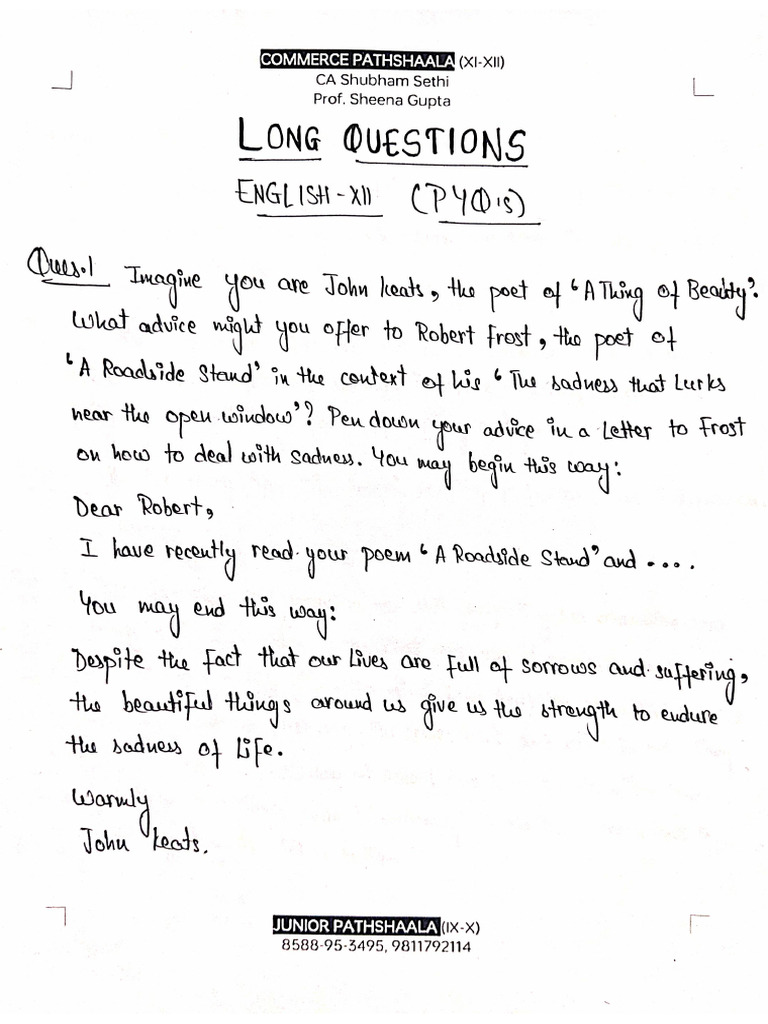 COMMERCE PATHSHAALA (XI-XII)
CA Shubham Sethi
Prof. Sheena Gupta
LONG QUESTIONS
ENGLISH-XII (PYQ's)
Ques.1 Imagine you are John keats, the poet of 'A Thing of Beauty'.
What advice might you offer to Robert Frost, the poet of
'A Roadside Stand' in the context of his 'The sadness that Lurks
near the open window'? Pen down your advice in a Letter to Frost
on how to deal with sadness. You may begin this way:
Dear Robert,
I have recently read your poem 'A Roadside Stand' and ....
You may end this way:
Despite the fact that our Lives are full of sorrows and suffering,
the beautiful things around us give us the strength to endure
the sadness of Life.
Warmly
John keats.
JUNIOR PATHSHAALA (IX-X)
8588-95-3495, 9811792114